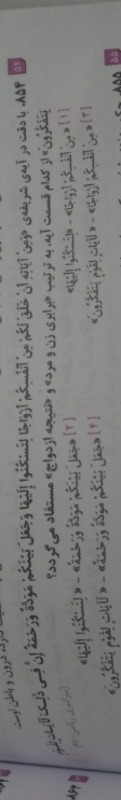 ۸۵۴. با دقت در آیه‌ی شریفه‌ی «وَمِن آیَاتِهِ أَن خَلَقَ لَکُم مِن أَنفُسِکُم أَزوَاجًا لِتَسکُنُوا إِلَیهَا وَجَعَلَ بَینَکُم مَوَدَّةً وَرَحمَةً إِنَّ فِی ذَلِکَ لَآیَاتٍ لِقَومٍ
یَتَفَکَّرُونَ» از کدام قسمت آیه، به ترتیب «برابری زن و مرد» و «نتیجه ازدواج» مستفاد می‌گردد؟
[۱] «مِن أَنفُسِکُم أَزوَاجًا» - «لِتَسکُنُوا إِلَیهَا»
[۲] «جَعَلَ بَینَکُم مَوَدَّةً وَرَحمَةً» - «لِتَسکُنُوا إِلَیهَا»
[۳] «مِن أَنفُسِکُم أَزوَاجًا» - «لَآیَاتٍ لِقَومٍ یَتَفَکَّرُونَ»
[۴] «جَعَلَ بَینَکُم مَوَدَّةً وَرَحمَةً» - «لَآیَاتٍ لِقَومٍ یَتَفَکَّرُونَ»
۸۵۵.